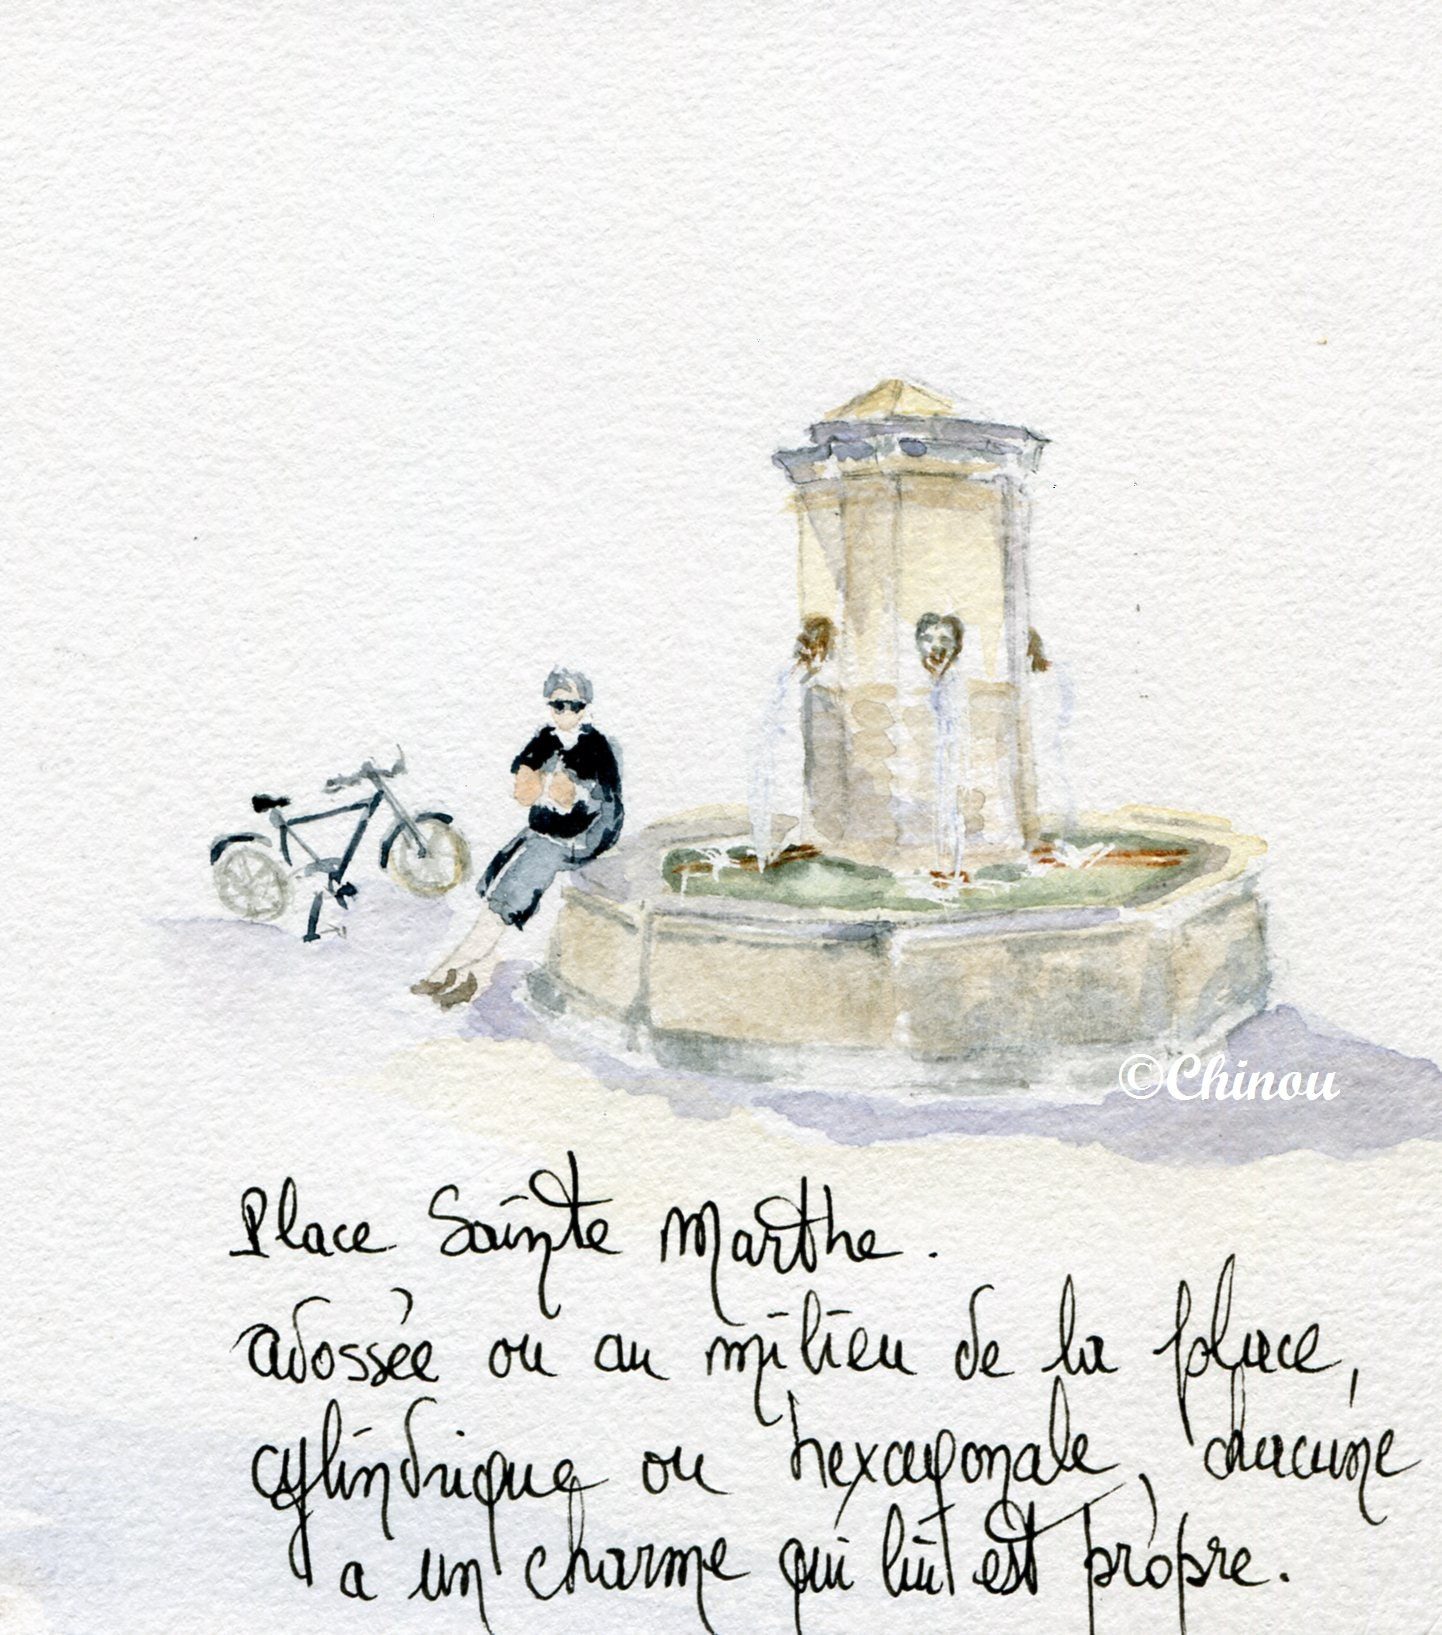 ©Chinou
Place Sainte Marthe.
adossée ou au milieu de la place,
cylindrique ou hexagonale, chacune
a un charme qui lui est propre.